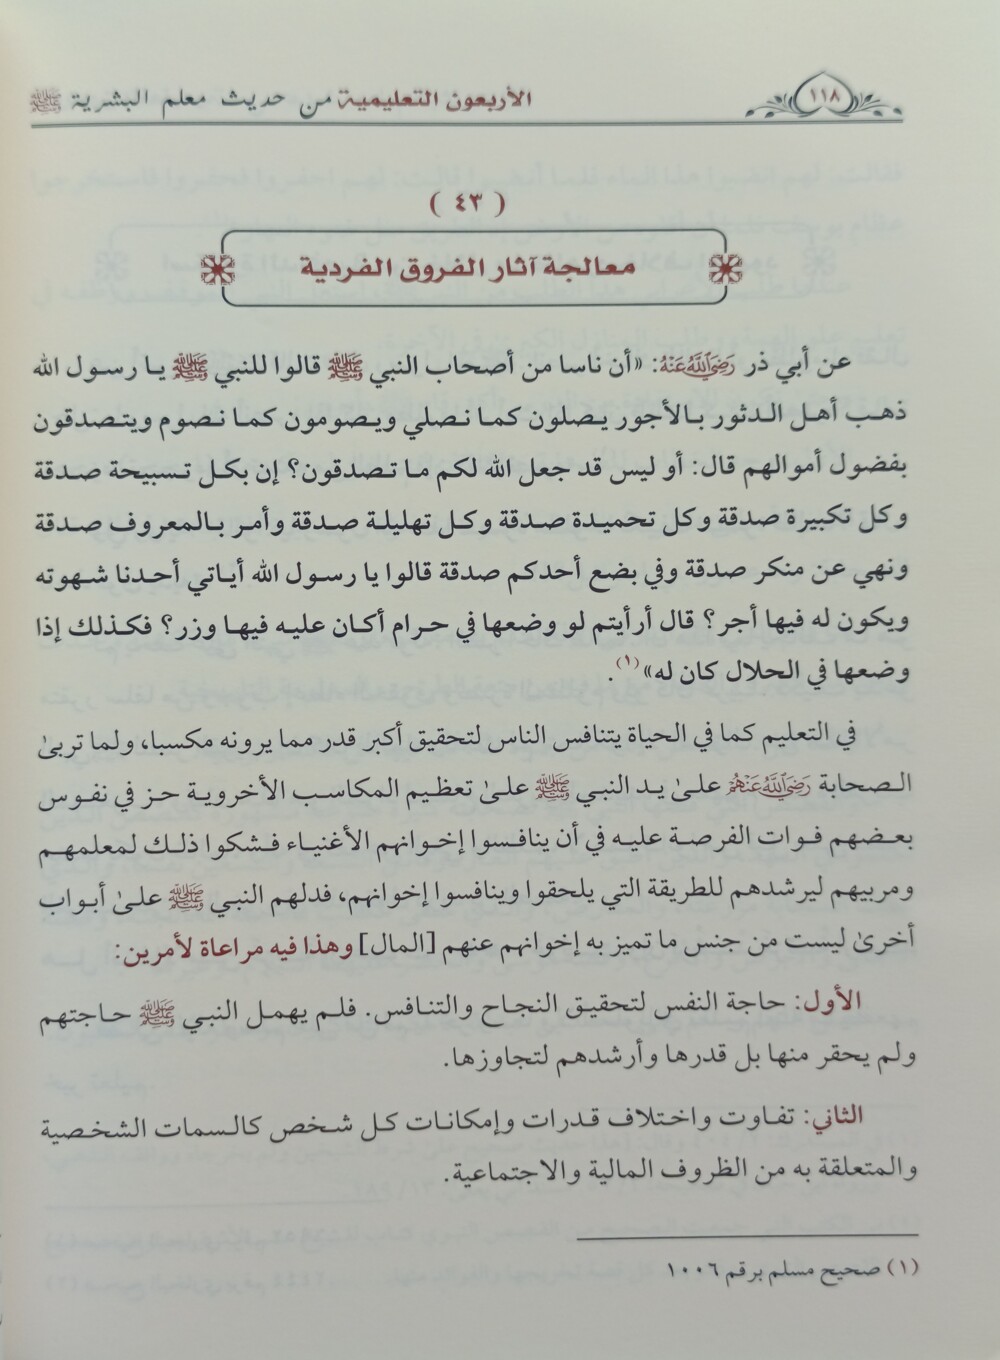 ١١٨
الأربعون التعليمية من حديث معلم البشرية ﷺ
( ٤٣ )
معالجة آثار الفروق الفردية
عن أبي ذر رَضِيَٱللَّهُعَنْهُ: «أن ناسا من أصحاب النبي ﷺ قالوا للنبي ﷺ يا رسول الله
ذهب أهل الدثور بالأجور يصلون كما نصلي ويصومون كما نصوم ويتصدقون
بفضول أموالهم قال: أو ليس قد جعل الله لكم ما تصدقون؟ إن بكل تسبيحة صدقة
وكل تكبيرة صدقة وكل تحميدة صدقة وكل تهليلة صدقة وأمر بالمعروف صدقة
ونهي عن منكر صدقة وفي بضع أحدكم صدقة قالوا يا رسول الله أياتي أحدنا شهوته
ويكون له فيها أجر؟ قال أرأيتم لو وضعها في حرام أكان عليه فيها وزر؟ فكذلك إذا
وضعها في الحلال كان له»(١).
في التعليم كما في الحياة يتنافس الناس لتحقيق أكبر قدر مما يرونه مكسبا، ولما تربىٰ
الصحابة رَضِيَٱللَّهُعَنْهُمْ علىٰ يد النبي ﷺ علىٰ تعظيم المكاسب الأخروية حز في نفوس
بعضهم فوات الفرصة عليه في أن ينافسوا إخوانهم الأغنياء فشكوا ذلك لمعلمهم
ومربيهم ليرشدهم للطريقة التي يلحقوا وينافسوا إخوانهم، فدلهم النبي ﷺ علىٰ أبواب
أخرىٰ ليست من جنس ما تميز به إخوانهم عنهم [المال] وهذا فيه مراعاة لأمرين:
الأول: حاجة النفس لتحقيق النجاح والتنافس. فلم يهمل النبي ﷺ حاجتهم
ولم يحقر منها بل قدرها وأرشدهم لتجاوزها.
الثاني: تفاوت واختلاف قدرات وإمكانات كل شخص كالسمات الشخصية
والمتعلقة به من الظروف المالية والاجتماعية.
(١) صحيح مسلم برقم ١٠٠٦